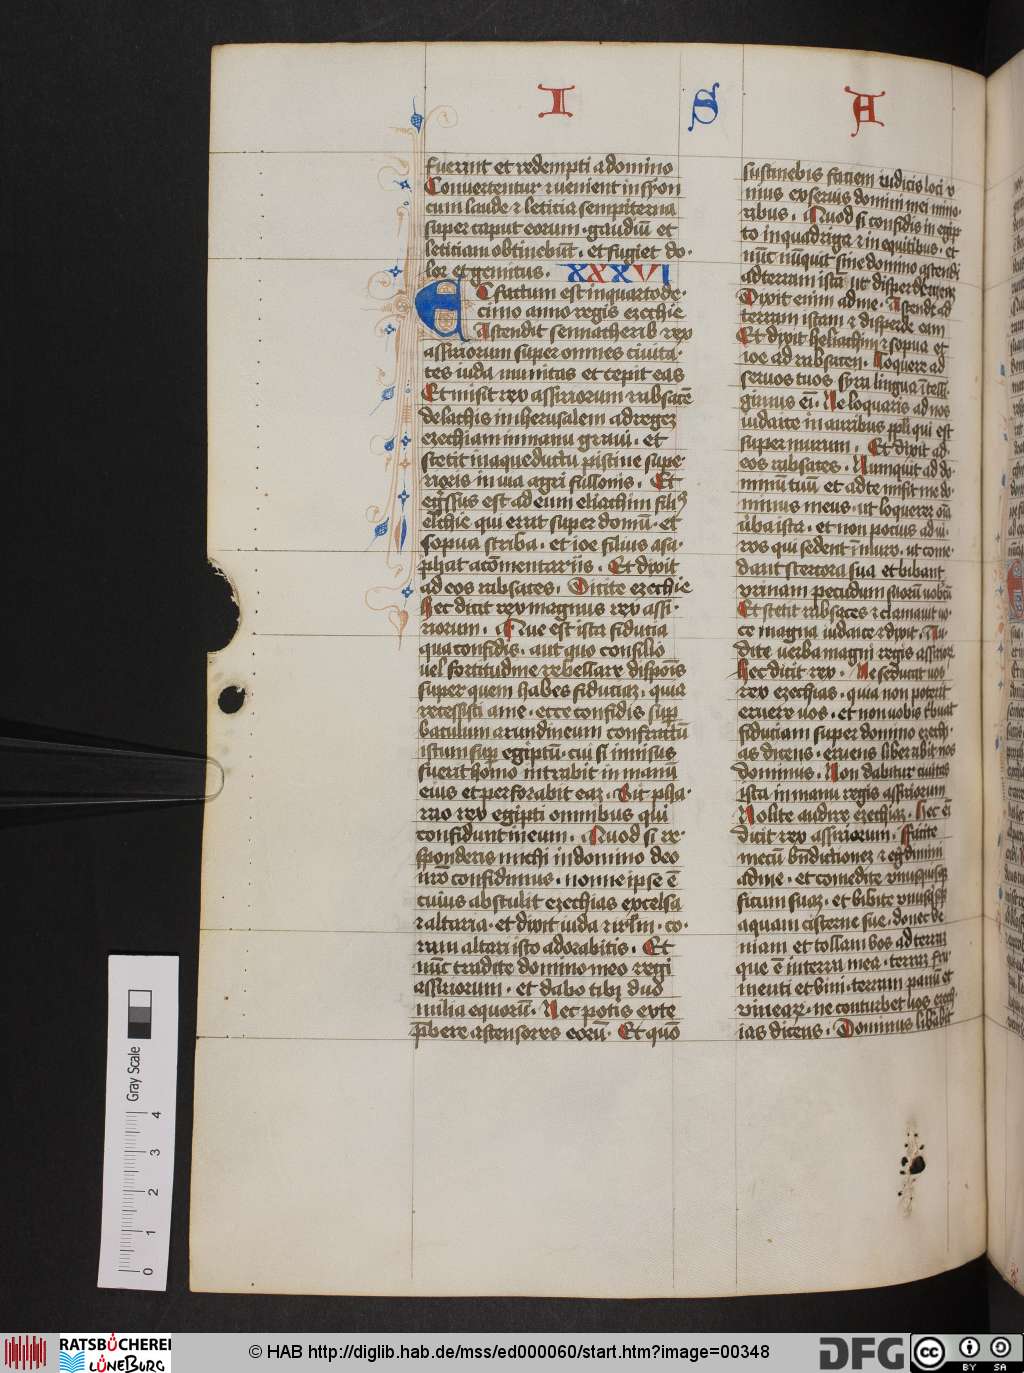 I S A
fuerint et redempti a domino
Convertentur ⁊ venient in syon
cum laude ⁊ leticia sempiterna
super caput eorum · gaudiū et
leticiam obtinebūt · et fugiet do-
lor et gemitus · XXXVI
Et factum est in quarto de-
cimo anno regis ezechie
Ascendit sennacherib rex
assiriorum super omnes civita-
tes iuda munitas et cepit eas
Et misit rex assiriorum rabsacē
de lachis in iherusalem ad regeȝ
ezechiam in manu gravi · et
stetit in aqueductu piscine supe-
rioris in via agri fullonis · Et
egressus est ad eum eliachim filiꝰ
elchie qui erat super domū · et
sopna scriba · et ioe filius asa-
phat a cōmentariis · Et dixit
ad eos rabsaces · Dicite ezechie
hec dicit rex magnus rex assi-
riorum · Que est ista fiducia
qua confidis · aut quo consilio
vel fortitudine rebellare disponis
super quem habes fiduciaȝ · quia
recessisti a me · ecce confidis sup
baculum arundineum confractū
istum sup egiptū · cui si innisus
fuerit homo intrabit in manū
eius et perforabit eaȝ · Sic pha-
rao rex egipti omnibus qui
confidunt in eum · Quod si re-
sponderis michi in domino deo
nrō confidimus · nonne ipse ē
cuius abstulit ezechias excelsa
⁊ altaria · et dixit iuda ⁊ irlm · co-
ram altari isto adorabitis · Et
nūc tradite domino meo regi
assiriorum · et dabo tibi duo
milia equorū · Nec potis ex te
pbere ascensores eorū · Et quō
sustinebis faciem iudicis loci v
nius ex servis domini mei mino-
ribus · Quod si confidis in egip
to in quadriga ⁊ in equitibus · et
nūc nūquit sine domino ascendi
ad terram istā ut disperderem eā
Dixit enim ad me · Ascende ad
terram istam ⁊ disperde eam
Et dixit heliachim ⁊ sopna et
ioe ad rabsacen · Loquere ad
servos tuos syra lingua ītelli-
gimus eī · Ne loquaris ad nos
iudaice in auribus ppli qui est
super murum · Et dixit ad
eos rabsaces · Numquit ad do-
minū tuū et ad te misit me do-
minus meus · ut loquerer oīa
v̄ba ista · et non pocius ad vi-
ros qui sedent ī muro · ut come-
dant stercora sua et bibant
vrinam pecudum suorū vobiscū
Et stetit rabsaces ⁊ clamavit vo-
ce magna iudaice ⁊ dixit · Au-
dite verba magni regis assirior
hec dicit rex · Ne seducat vos
rex ezechias · quia non poterit
eruere vos · et non vobis tbuat
fiduciam super domino ezech-
as dicens · eruens liberabit nos
dominus · Non dabitur civitas
ista in manu regis assiriorum
Nolite audire ezechiaȝ · hec eī
dicit rex assiriorum · Facite
mecū bn̄dictioneȝ ⁊ egdimini
ad me · et comedite vnusquisqȝ
ficum suaȝ · et bibite vnusqsqȝ
aquam cisterne sue · donec ve
niam et tollam vos ad terraȝ
que ē in terra mea · terraȝ fru
menti et vini · terram panū et
vinearȝ · ne conturbet vos ezech-
ias dicens · Dominus libābit
Gray Scale
0 1 2 3 4
RATSBÜCHEREI
LÜNEBURG
© HAB http://diglib.hab.de/mss/ed000060/start.htm?image=00348
DFG
cc BY SA